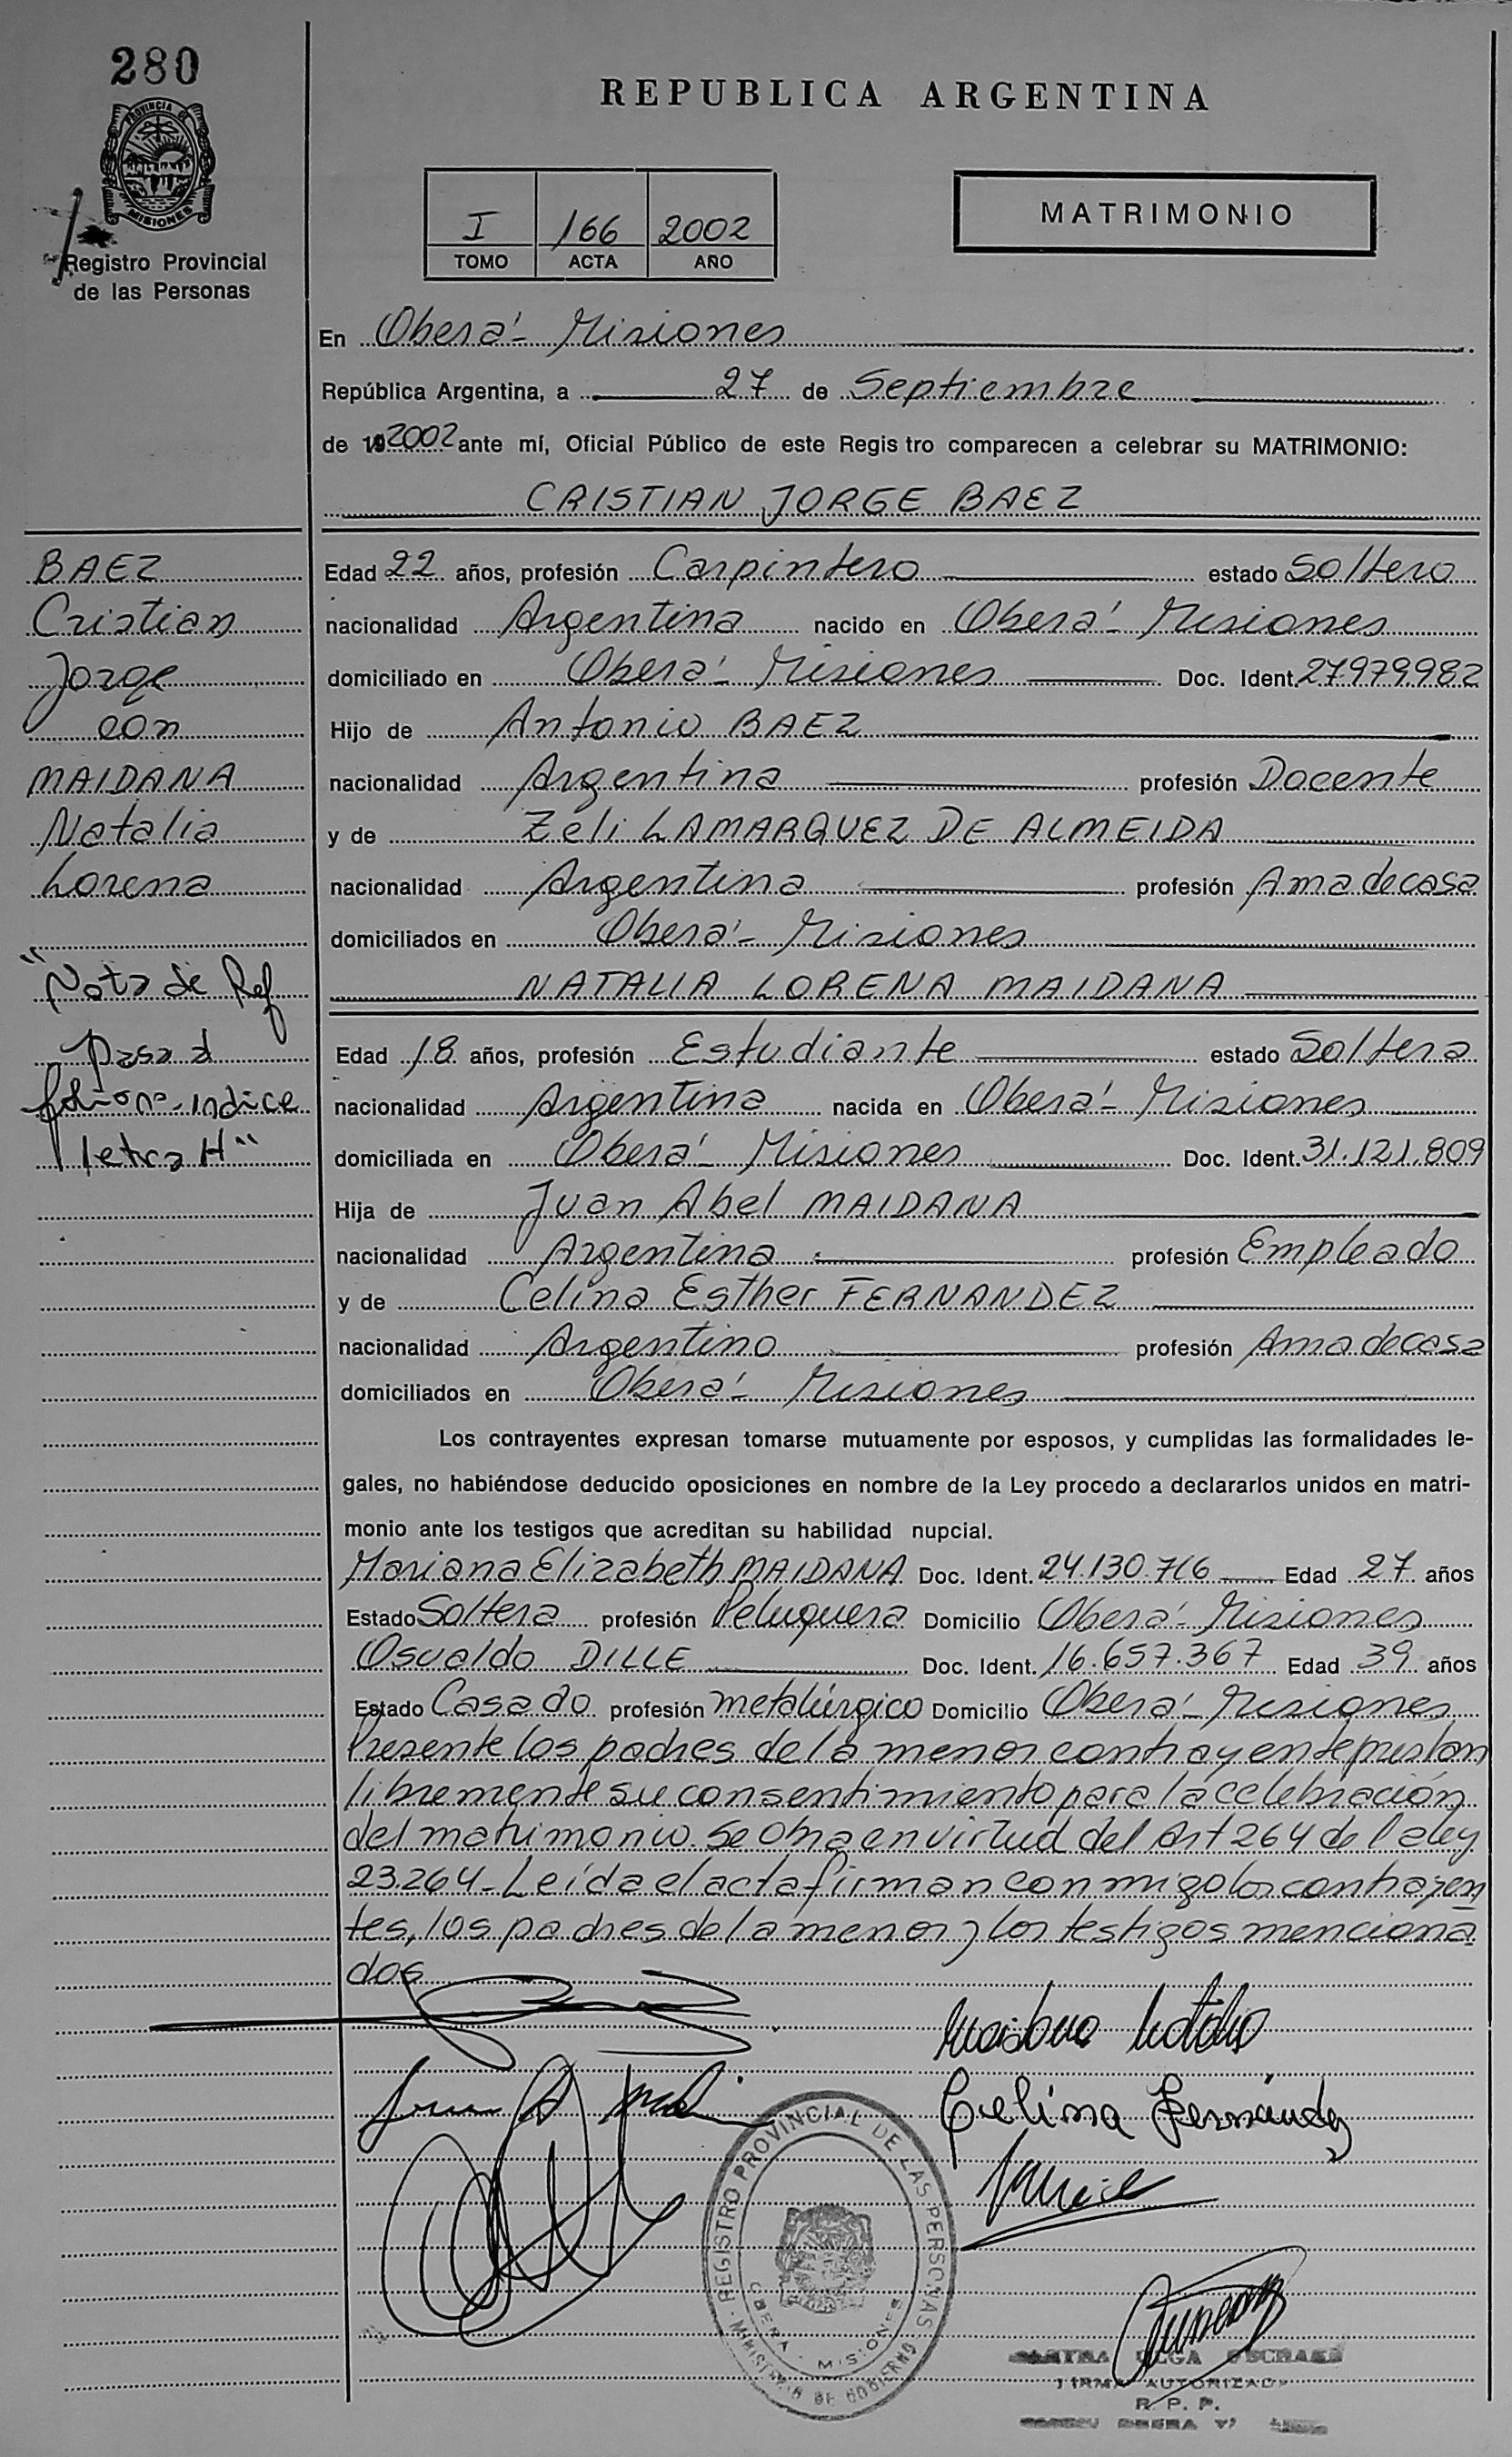 280
REPUBLICA ARGENTINA
PROVINCIA DE
MISIONES
Registro Provincial
de las Personas
I 166 2002
TOMO ACTA AÑO
MATRIMONIO
En Oberá - Misiones
República Argentina, a 27 de Septiembre
de 192002 ante mí, Oficial Público de este Regis tro comparecen a celebrar su MATRIMONIO:
CRISTIAN JORGE BAEZ
BAEZ
Cristian
Jorge
con
MAIDANA
Natalia
Lorena
"Nota de Ref
Pasa a
folio nº - Indice
letra H"
Edad 22 años, profesión Carpintero estado Soltero
nacionalidad Argentina nacido en Oberá - Misiones
domiciliado en Oberá - Misiones Doc. Ident. 27979982
Hijo de Antonio BAEZ
nacionalidad Argentina profesión Docente
y de Zeli LAMARQUEZ DE ALMEIDA
nacionalidad Argentina profesión Ama de casa
domiciliados en Oberá - Misiones
NATALIA LORENA MAIDANA
Edad 18 años, profesión Estudiante estado Soltera
nacionalidad Argentina nacida en Oberá - Misiones
domiciliada en Oberá - Misiones Doc. Ident. 31.121.809
Hija de Juan Abel MAIDANA
nacionalidad Argentina profesión Empleado
y de Celina Esther FERNANDEZ
nacionalidad Argentino profesión Ama de casa
domiciliados en Oberá - Misiones
Los contrayentes expresan tomarse mutuamente por esposos, y cumplidas las formalidades le-
gales, no habiéndose deducido oposiciones en nombre de la Ley procedo a declararlos unidos en matri-
monio ante los testigos que acreditan su habilidad nupcial.
Mariana Elizabeth MAIDANA Doc. Ident. 24.130.716 Edad 27 años
Estado Soltera profesión Peluquera Domicilio Oberá - Misiones
Osvaldo DILLE Doc. Ident. 16.657.367 Edad 39 años
Estado Casado profesión metalúrgico Domicilio Oberá - Misiones
Presente los padres de la menor contrayente prestan
libremente su consentimiento para la celebración
del matrimonio. Se obra en virtud del Art 264 de la ley
23.264 - Leída el acta firman conmigo los contrayen
tes, los padres de la menor y los testigos menciona
dos
Maidana Natalia
Celina Fernández
REGISTRO PROVINCIAL DE LAS PERSONAS
MINISTERIO DE GOBIERNO
OBERA - MISIONES
OLGA
FIRMA AUTORIZADA
R. P. P.
OBERA